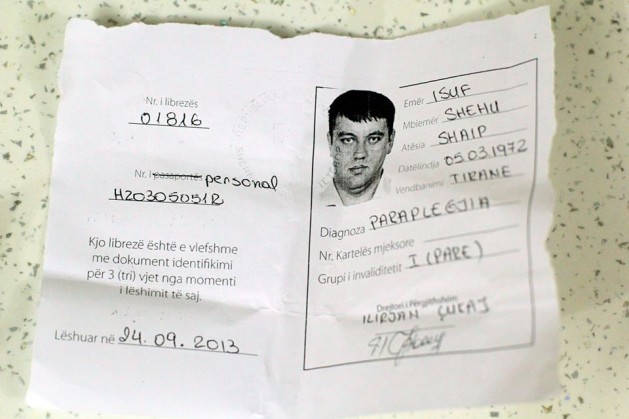 Nr. i librezës
01816
Nr. i pasaportës personal
H20305051R
Kjo librezë është e vlefshme
me dokument identifikimi
për 3 (tri) vjet nga momenti
i lëshimit të saj.
Lëshuar në 24.09.2013
Emër ISUF
Mbiemër SHEHU
Atësia SHAIP
Datëlindja 05.03.1972
Vendbanimi TIRANE
Diagnoza PARAPLEGJIA
Nr. Kartelës mjeksore
Grupi i invaliditetit I (PARE)
Drejtori i Përgjithshëm
ILIRJAN ÇUKAJ